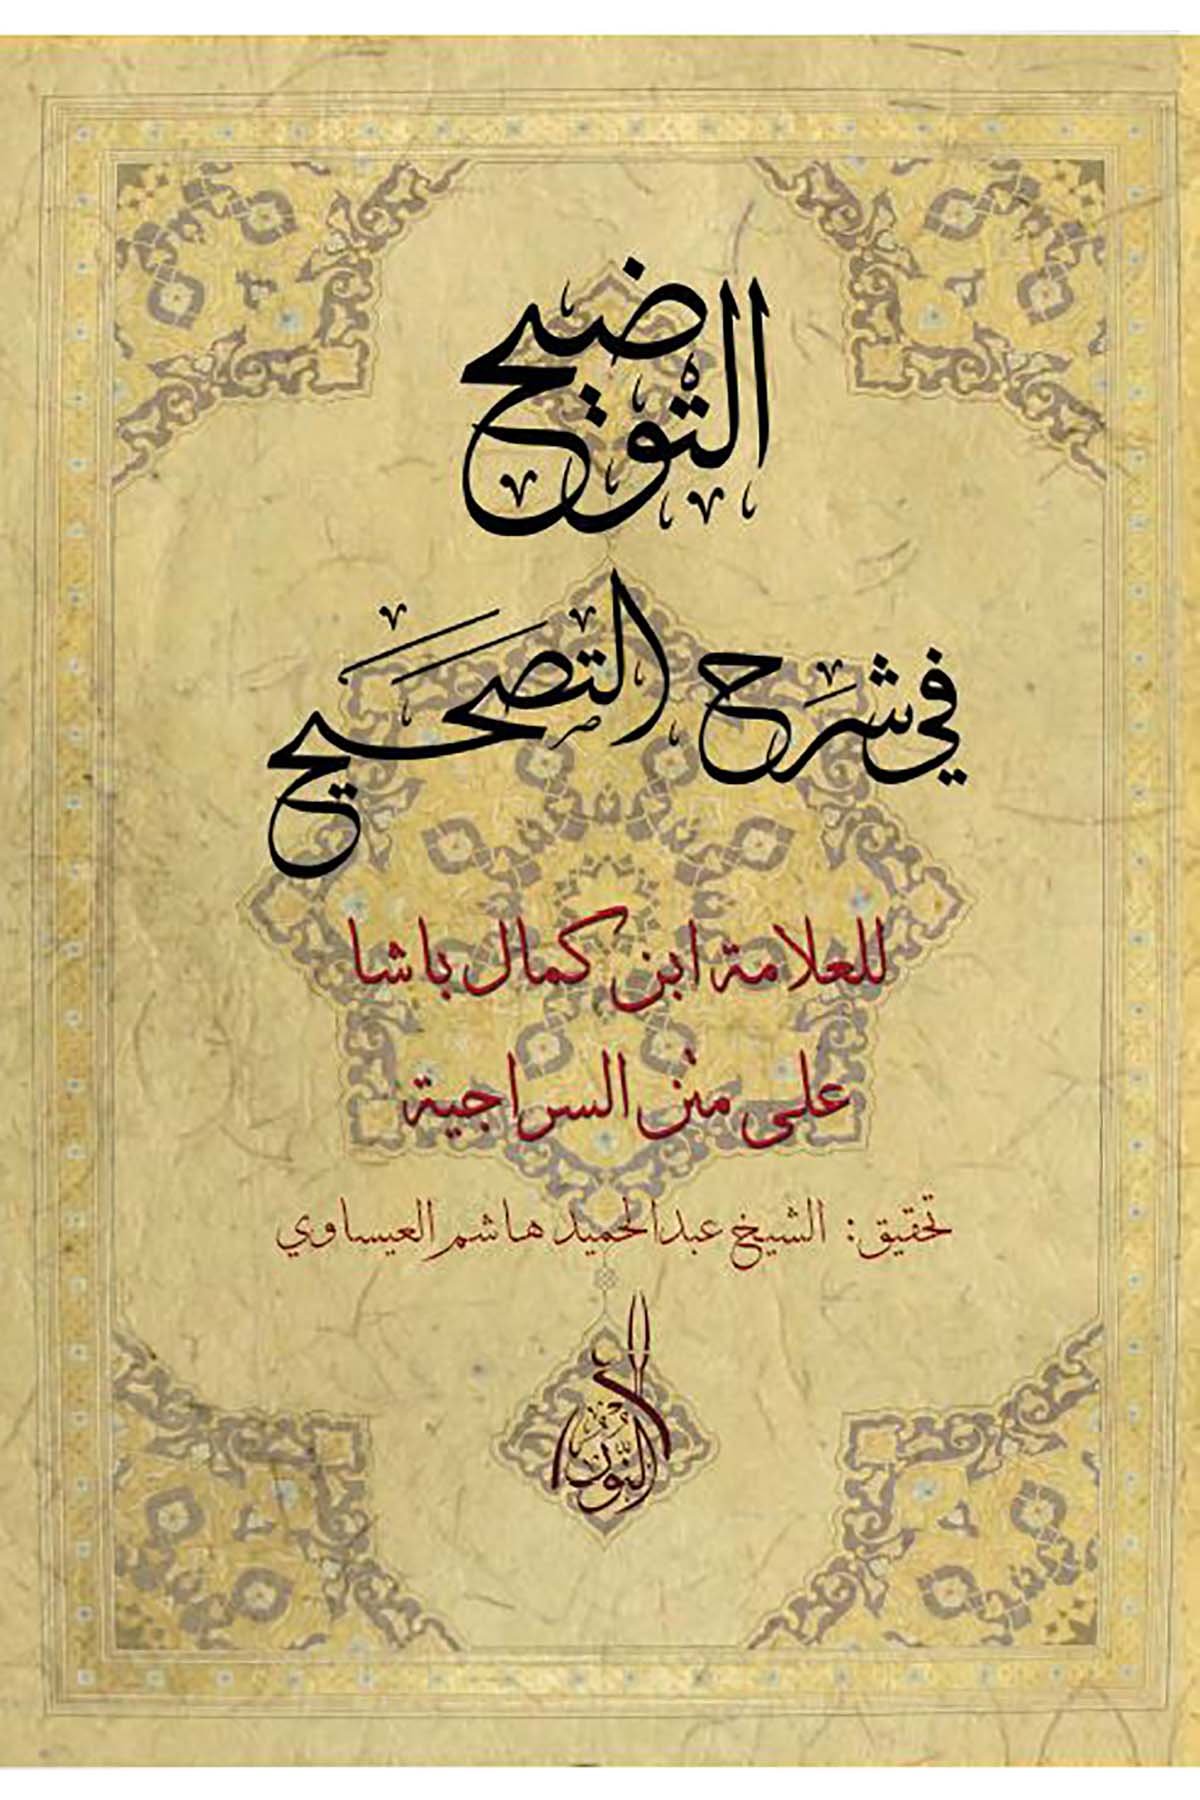 التوضيح
في شرح التصحيح
للعلامة ابن كمال باشا
على متن السراجية
تحقيق: الشيخ عبدالحميد هاشم العيساوي
النور